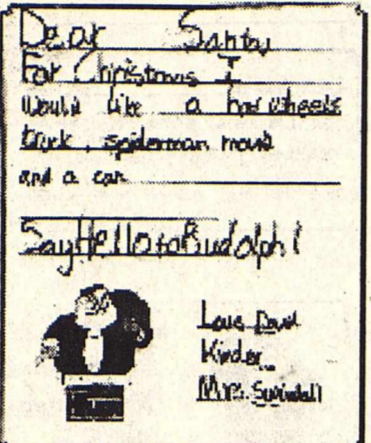 Dear Santa
For Christmas I
Would like a hot wheels
truck, spiderman movie
and a car
Say Hello to Rudolph!
Kinder
Mrs.